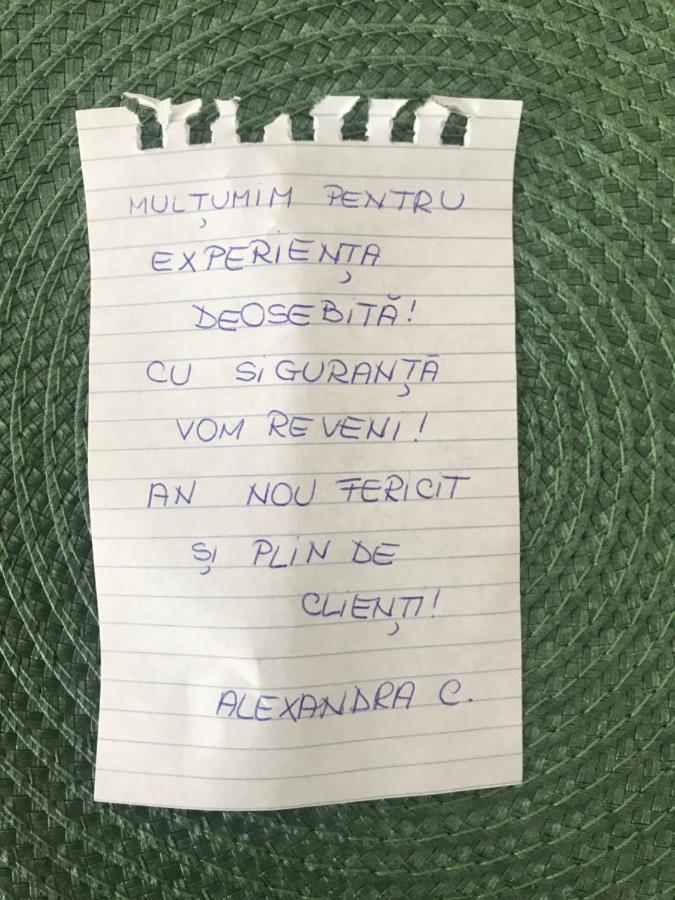 MULȚUMIM PENTRU
EXPERIENȚA
DEOSEBITĂ!
CU SIGURANȚĂ
VOM REVENI!
AN NOU FERICIT
ȘI PLIN DE
CLIENȚI!
ALEXANDRA C.